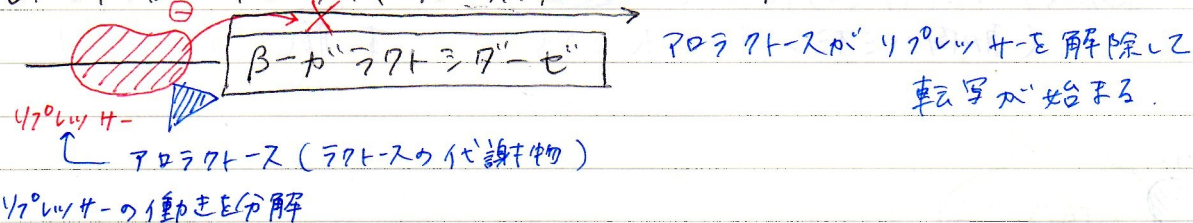 ⊖
β-ガラクトシダーゼ
アロラクトースが リプレッサーを 解除して
転写が始まる.
リプレッサー
アロラクトース (ラクトースの代謝物)
リプレッサーの働きを分解